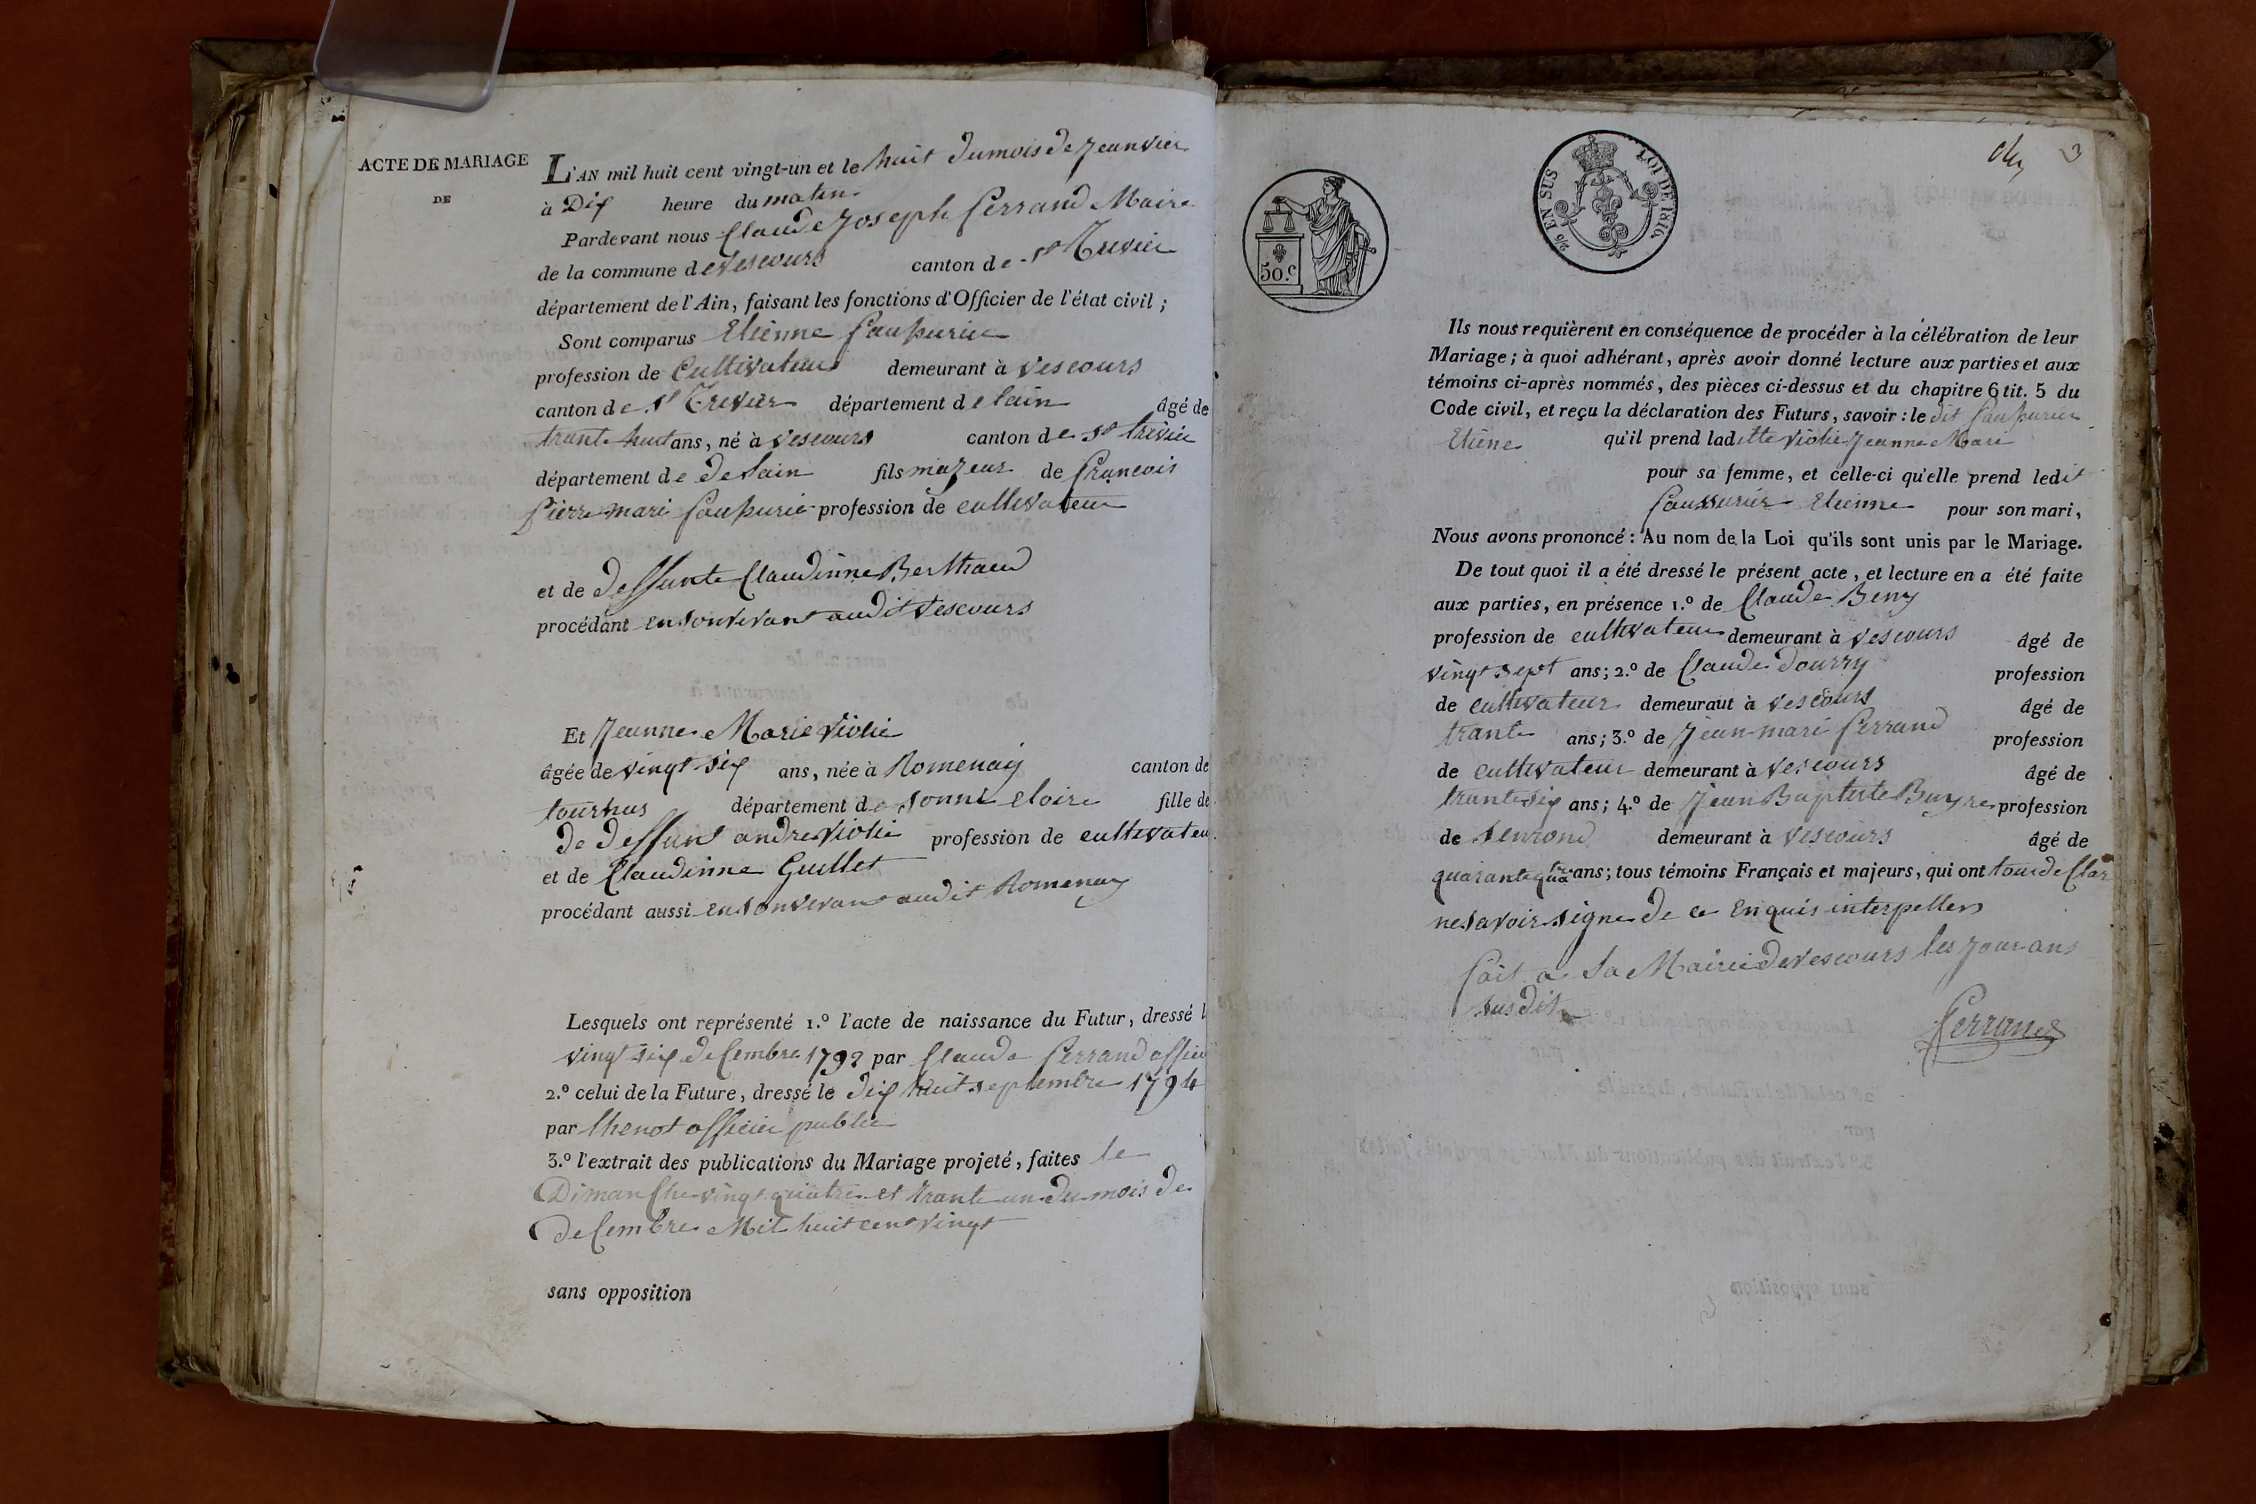 ACTE DE MARIAGE
DE
L'AN mil huit cent vingt-un et le huit du mois de Jeanvier
à Dix heure du matin
Pardevant nous Claude Joseph Ferrand Maire
de la commune de vescours canton de St Trivier
département de l'Ain, faisant les fonctions d'Officier de l'état civil ;
Sont comparus Etienne
profession de Cultivateur demeurant à vescours
canton de St Trevier département de lain âgé de
trante huit ans, né à vescours canton de St trivier
département de De lain fils mazeur de francois
pierre mari profession de cultivateur
et de deffunte Claudinne Berthaud
procédant en son vivant audit vescours
Et Jeanne Marie Violie
âgée de vingt six ans, née à Romenay canton de
tournus département de sonne eloire fille de
de deffunt andre violie profession de cultivateu
et de Claudinne Guillet
procédant aussi en son vivant audit Romenay
Lesquels ont représenté 1.º l'acte de naissance du Futur, dressé l
vingt six decembre par Claude Ferrand officie
2.º celui de la Future, dressé le dix huit septembre 1794
par officier public
3.º l'extrait des publications du Mariage projeté, faites le
Dimanche vingt quatre et trante un du mois de
decembre Mil huit cent vingt
sans opposition
3
EN SUS LOI DE 1816.
50.c
Ils nous requièrent en conséquence de procéder à la célébration de leur
Mariage ; à quoi adhérant, après avoir donné lecture aux parties et aux
témoins ci-après nommés, des pièces ci-dessus et du chapitre 6 tit. 5 du
Code civil, et reçu la déclaration des Futurs, savoir : le dit
Etiene qu'il prend laditte violie Jeanne Mari
pour sa femme, et celle-ci qu'elle prend ledit
Etienne pour son mari,
Nous avons prononcé : Au nom de la Loi qu'ils sont unis par le Mariage.
De tout quoi il a été dressé le présent acte, et lecture en a été faite
aux parties, en présence 1.º de Claude Beny
profession de cultivateur demeurant à vescours âgé de
vingt sept ans ; 2.º de Claude profession
de cultivateur demeurant à vescours âgé de
trante ans ; 3.º de Jean mari Ferrand profession
de cultivateur demeurant à vescours âgé de
trante six ans ; 4.º de Jean Baptiste profession
de demeurant à vescours âgé de
quarante quatre ans ; tous témoins Français et majeurs, qui ont tous de Clar
ne savoir signe de ce Enquis interpelles
fait a la Mairie de vescours les jour ans
susdit
Ferrand